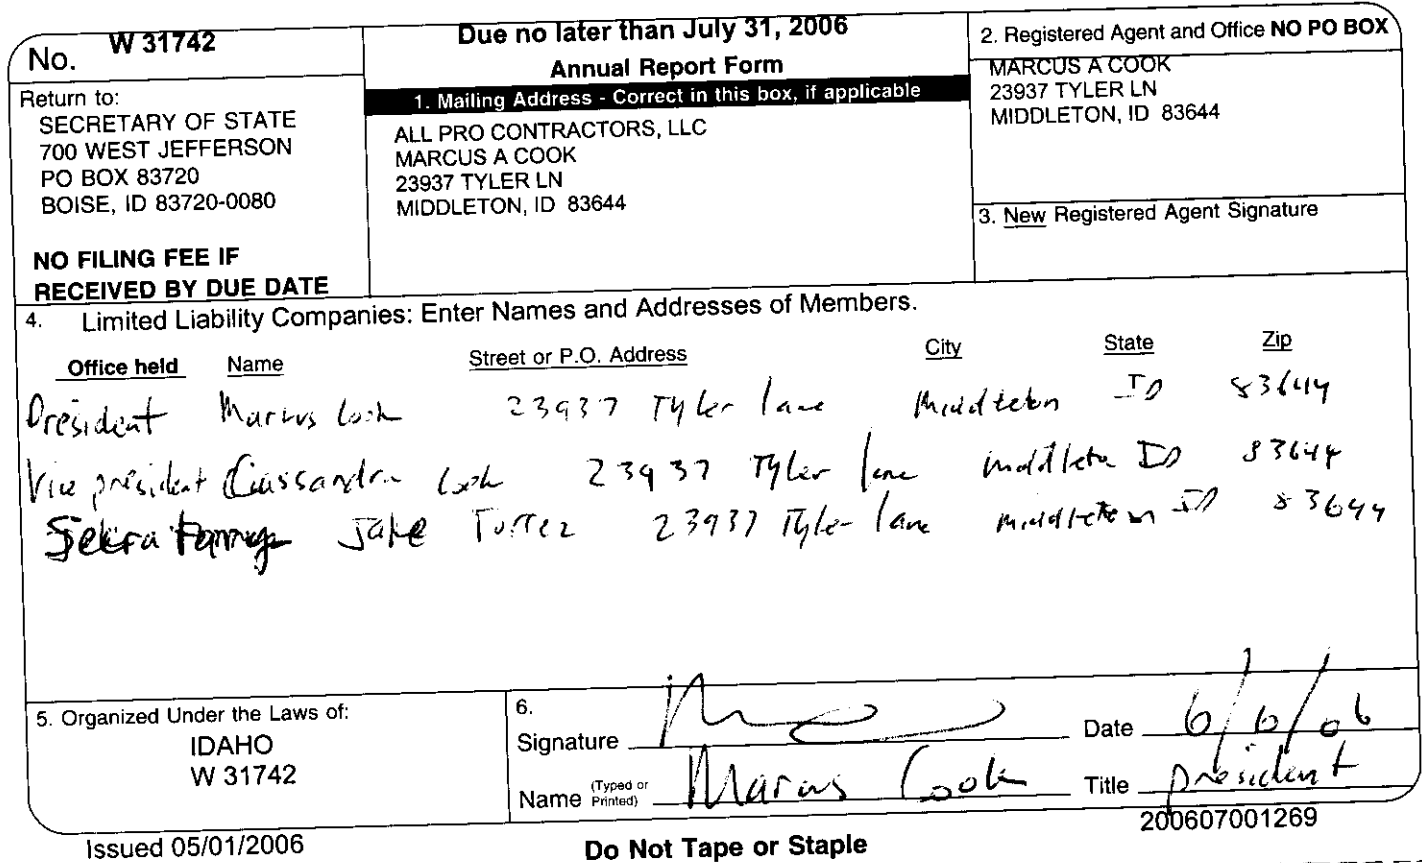 No. W 31742
Return to:
SECRETARY OF STATE
700 WEST JEFFERSON
PO BOX 83720
BOISE, ID 83720-0080
NO FILING FEE IF
RECEIVED BY DUE DATE
Due no later than July 31, 2006
Annual Report Form
1. Mailing Address - Correct in this box, if applicable
ALL PRO CONTRACTORS, LLC
MARCUS A COOK
23937 TYLER LN
MIDDLETON, ID 83644
2. Registered Agent and Office NO PO BOX
MARCUS A COOK
23937 TYLER LN
MIDDLETON, ID 83644
3. New Registered Agent Signature
4. Limited Liability Companies: Enter Names and Addresses of Members.
Office held Name Street or P.O. Address City State Zip
President Marcus Cook 23937 Tyler lane Middleton ID 83644
Vice president Cassandra Cook 23937 Tyler lane middleton ID 83644
Jake Torrez 23937 Tyler lane middleton ID 83644
5. Organized Under the Laws of:
IDAHO
W 31742
6.
Signature Date 6/6/06
Name (Typed or Printed) Marcus Cook Title president
200607001269
Issued 05/01/2006 Do Not Tape or Staple